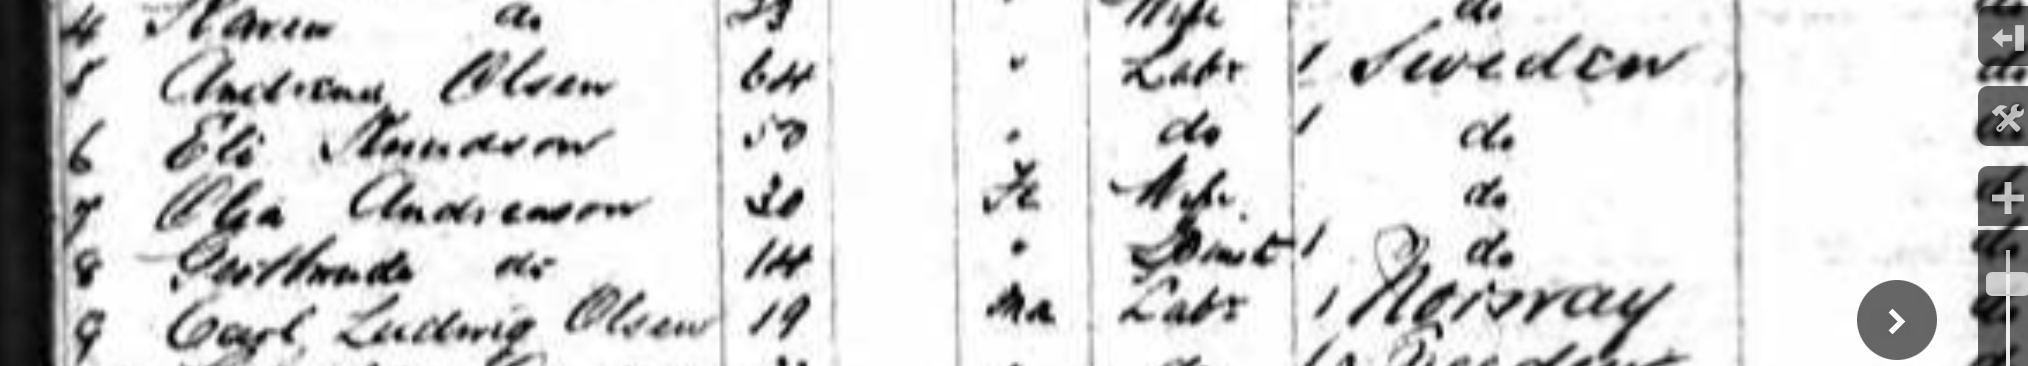 4 Karen do 29 " Wife do
5 Andreas Olsen 64 " Labr 1 Sweden do
6 Eli Knudson 50 " do 1 do
7 Olia Andrenson 30 Fe Wife do
8 Gerthrude do 14 " Domst 1 do do
9 Carl Ludwig Olsen 19 Ma Labr 1 Norway do